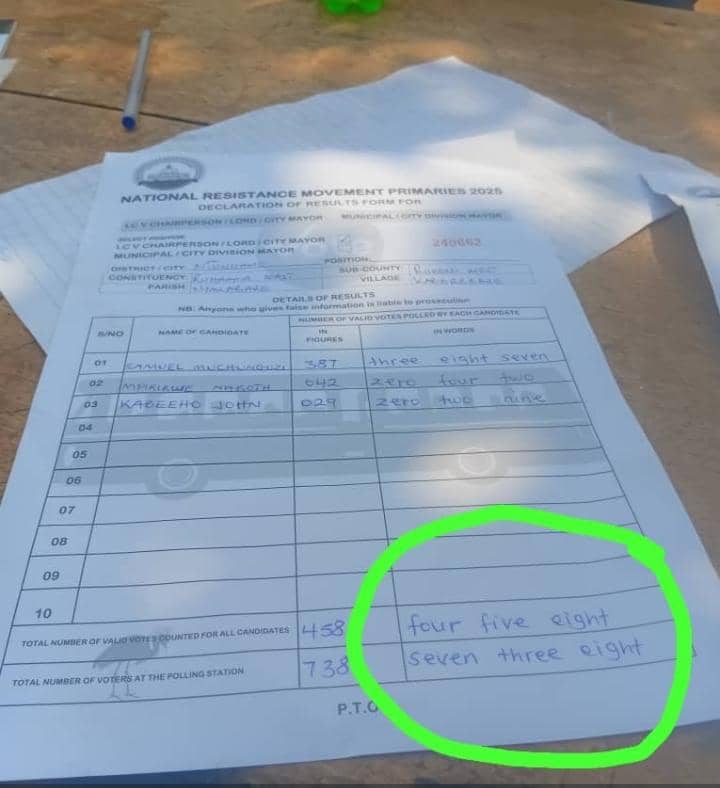 NATIONAL RESISTANCE MOVEMENT PRIMARIES 2025
DECLARATION OF RESULTS FORM FOR
LC V CHAIRPERSON / LORD / CITY MAYOR MUNICIPAL / CITY DIVISION MAYOR
LC V CHAIRPERSON / LORD / CITY MAYOR
MUNICIPAL / CITY DIVISION MAYOR
240662
POSITION:
DISTRICT / CITY
SUB-COUNTY
CONSTITUENCY
VILLAGE
PARISH
DETAILS OF RESULTS
NB: Anyone who gives false information is liable to prosecution
S/NO NAME OF CANDIDATE NUMBER OF VALID VOTES POLLED BY EACH CANDIDATE
IN FIGURES IN WORDS
01 SAMUEL 387 three eight seven
02 042 zero four two
03 KABEEHO JOHN 029 zero two nine
04
05
06
07
08
09
10
TOTAL NUMBER OF VALID VOTES COUNTED FOR ALL CANDIDATES 458 four five eight
TOTAL NUMBER OF VOTERS AT THE POLLING STATION 738 seven three eight
P.T.O